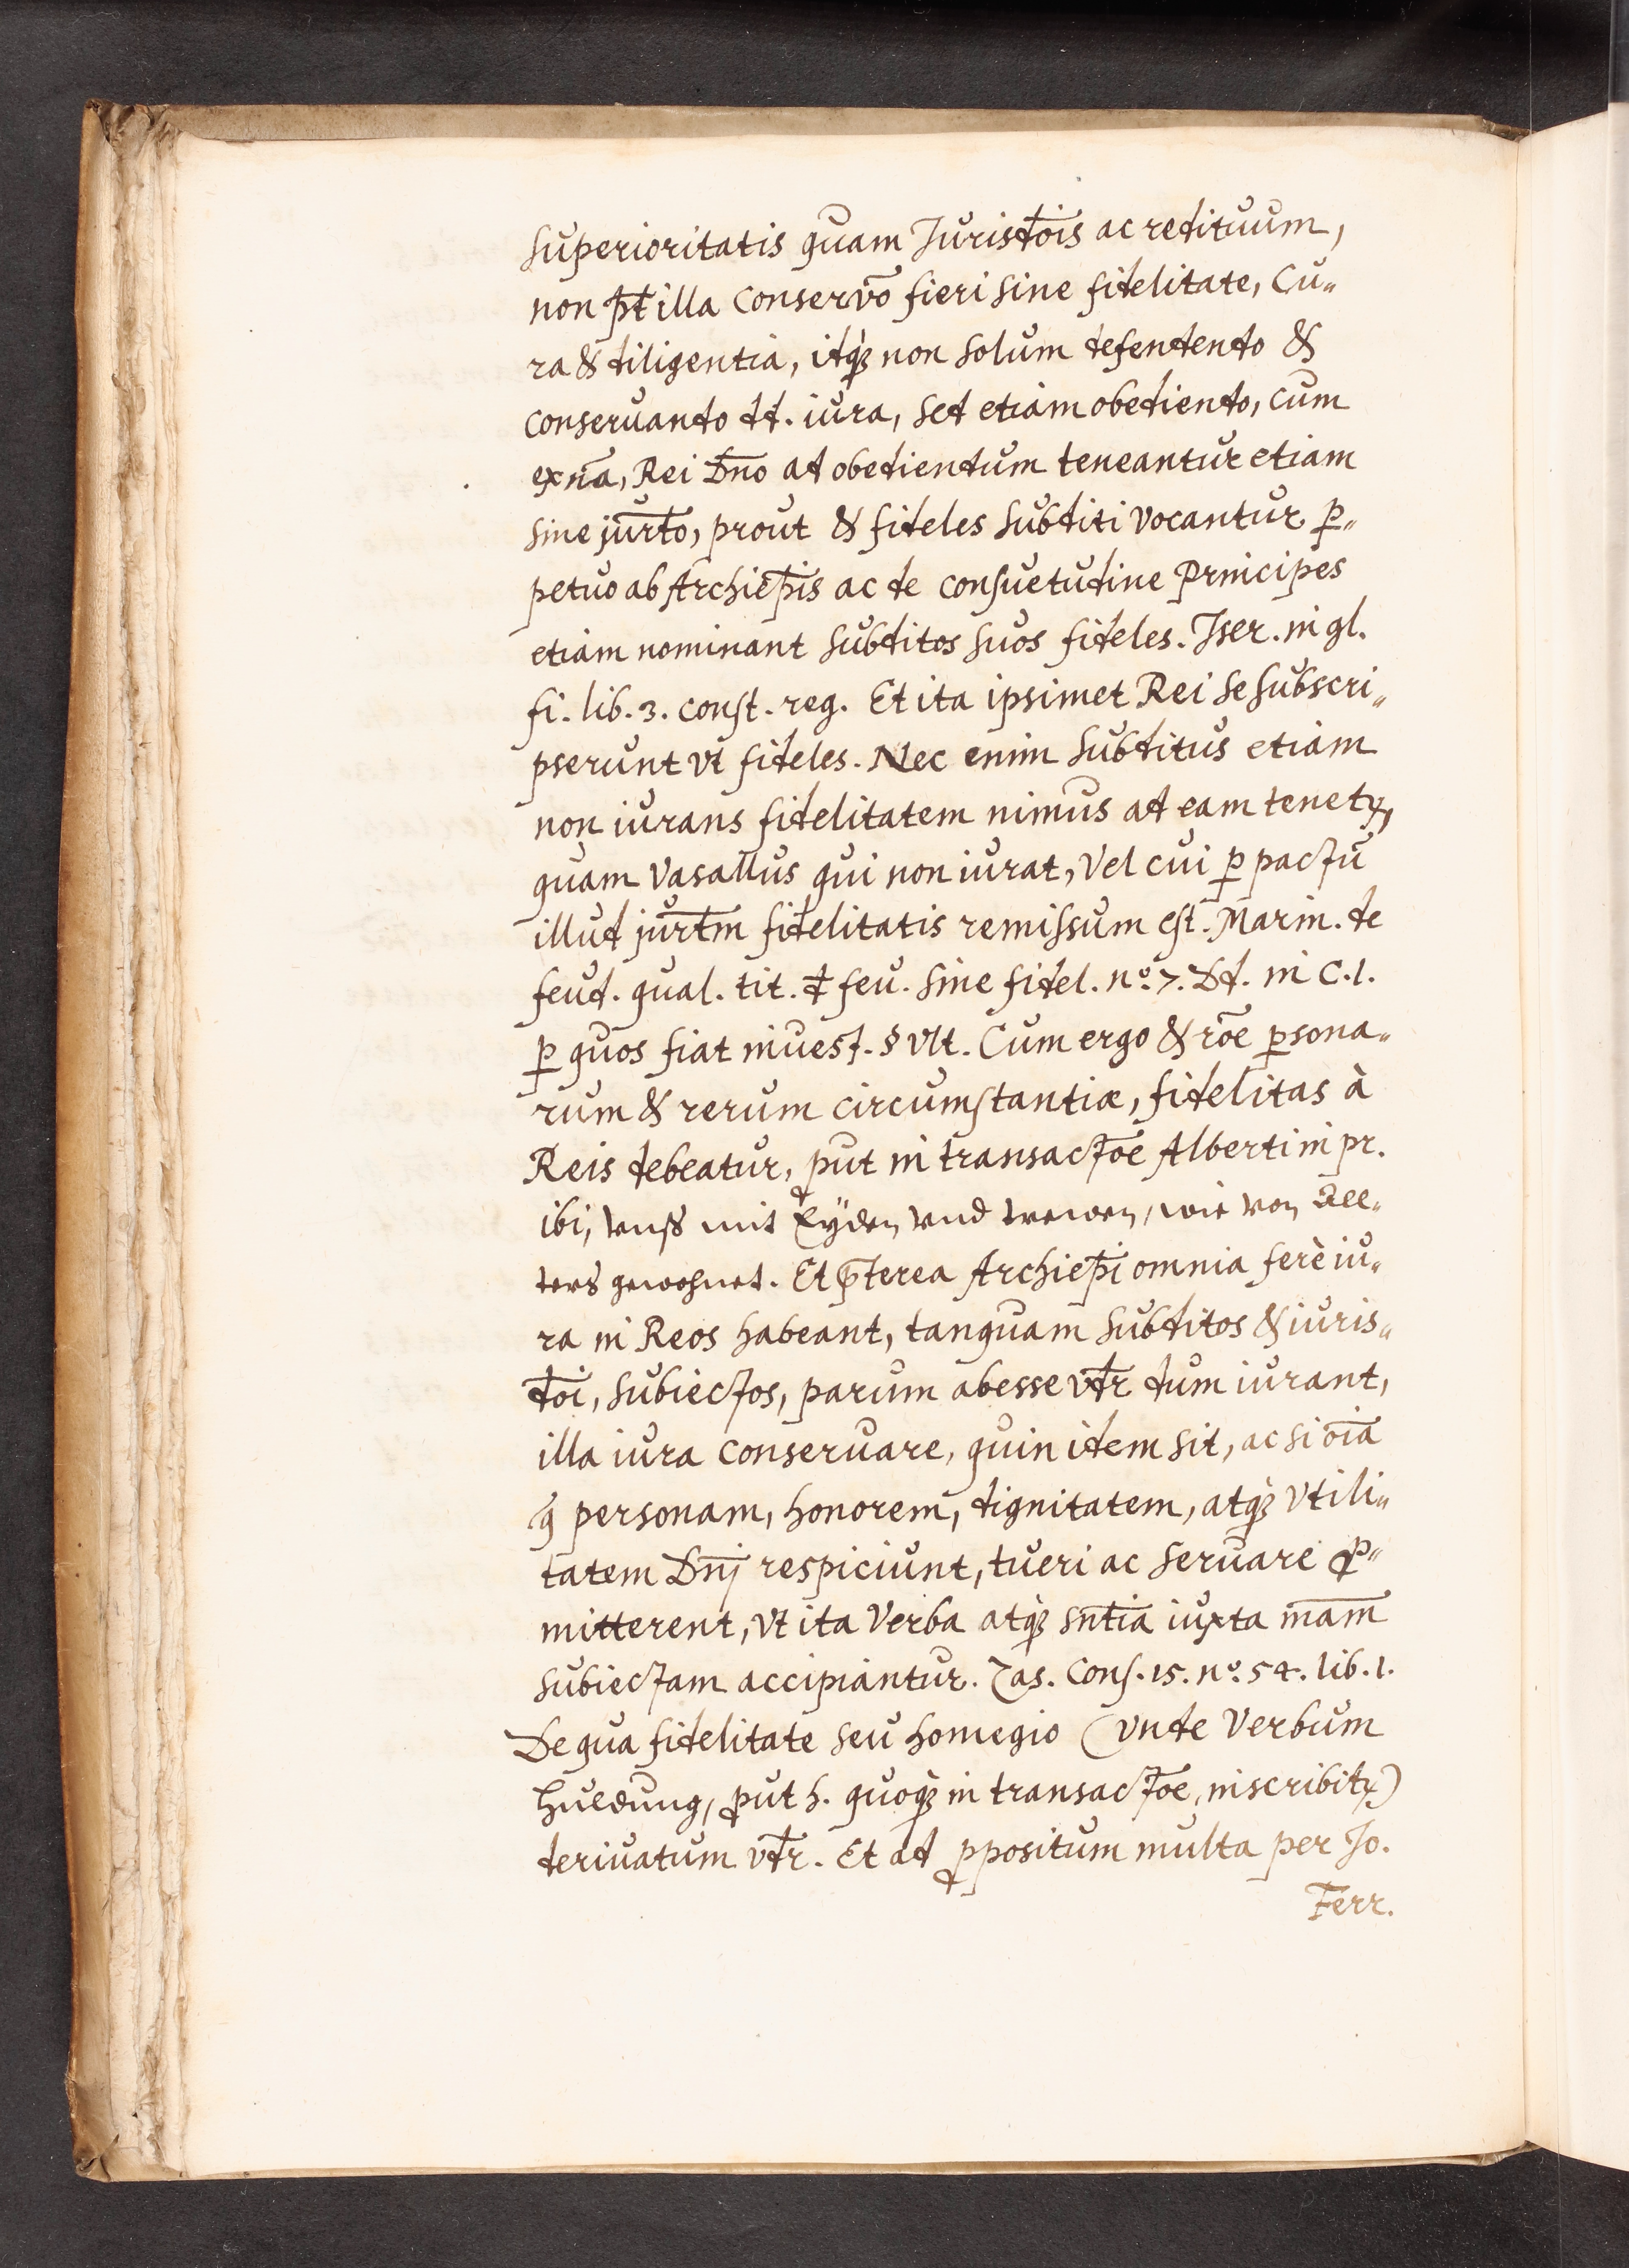 superioritatis quam Jurisd̄ois ac redituum,
non pt̄ illa conservō fieri sine fidelitate, Cu„
ra & diligentia, idq̃ꝫ non solum defendendo &
conseruando dd. iura, sed etiam obediendo, cum
ex nā, Rei Dn̄o ad obediendum teneantur etiam
sine jurt̄o, prout & fideles subditi vocantur ꝑ„
petuo ab Archiep̄is ac de consuetudine Principes
etiam nominant subditos suos fideles. Iser. in gl.
fi. lib. 3. const. reg. Et ita ipsimet Rei se subscri„
pserunt vt fideles. Nec enim subditus etiam
non iurans fidelitatem minus ad eam tenetꝝ,
quam Vasallus qui non iurat, Vel cui ꝑ pactū
illud jurt̄m fidelitatis remissum est. Marin. de
feud. qual. tit. đ feu. sine fidel. nº. 7. Dd. in C. 1.
ꝑ quos fiat inuest. § Vlt. Cum ergo & rōe ꝑsona„
rum & rerum circumstantiæ, fidelitas à
Reis debeatur, ꝓut in transactōe Alberti in pr.
ibi, vnß mit Eÿden vnd trewen, wie von All„
ters gewohnet. Et p̄terea Archiep̄i omnia ferè iu„
ra in Reos habeant, tanquam subditos & iuris„
d̄oi, subiectos, parum abesse vd̄r dum iurant,
illa iura conseruare, quin idem sit, ac si oīa
q̄ personam, honorem, dignitatem, atq̃ꝫ vtili„
tatem Dn̄j respiciunt, tueri ac seruare ꝓ„
mitterent, vt ita Verba atq̃ꝫ sn̄tia iuxta mām
subiectam accipiantur. Zas. Cons. 15. nº. 54. lib. 1.
De qua fidelitate seu homegio (vnde Verbum
Huldung, ꝓut h. quoq̃ꝫ in transactōe, inscribitꝝ)
deriuatum vd̄r. Et ad ꝓpositum multa per Jo.
Ferr.